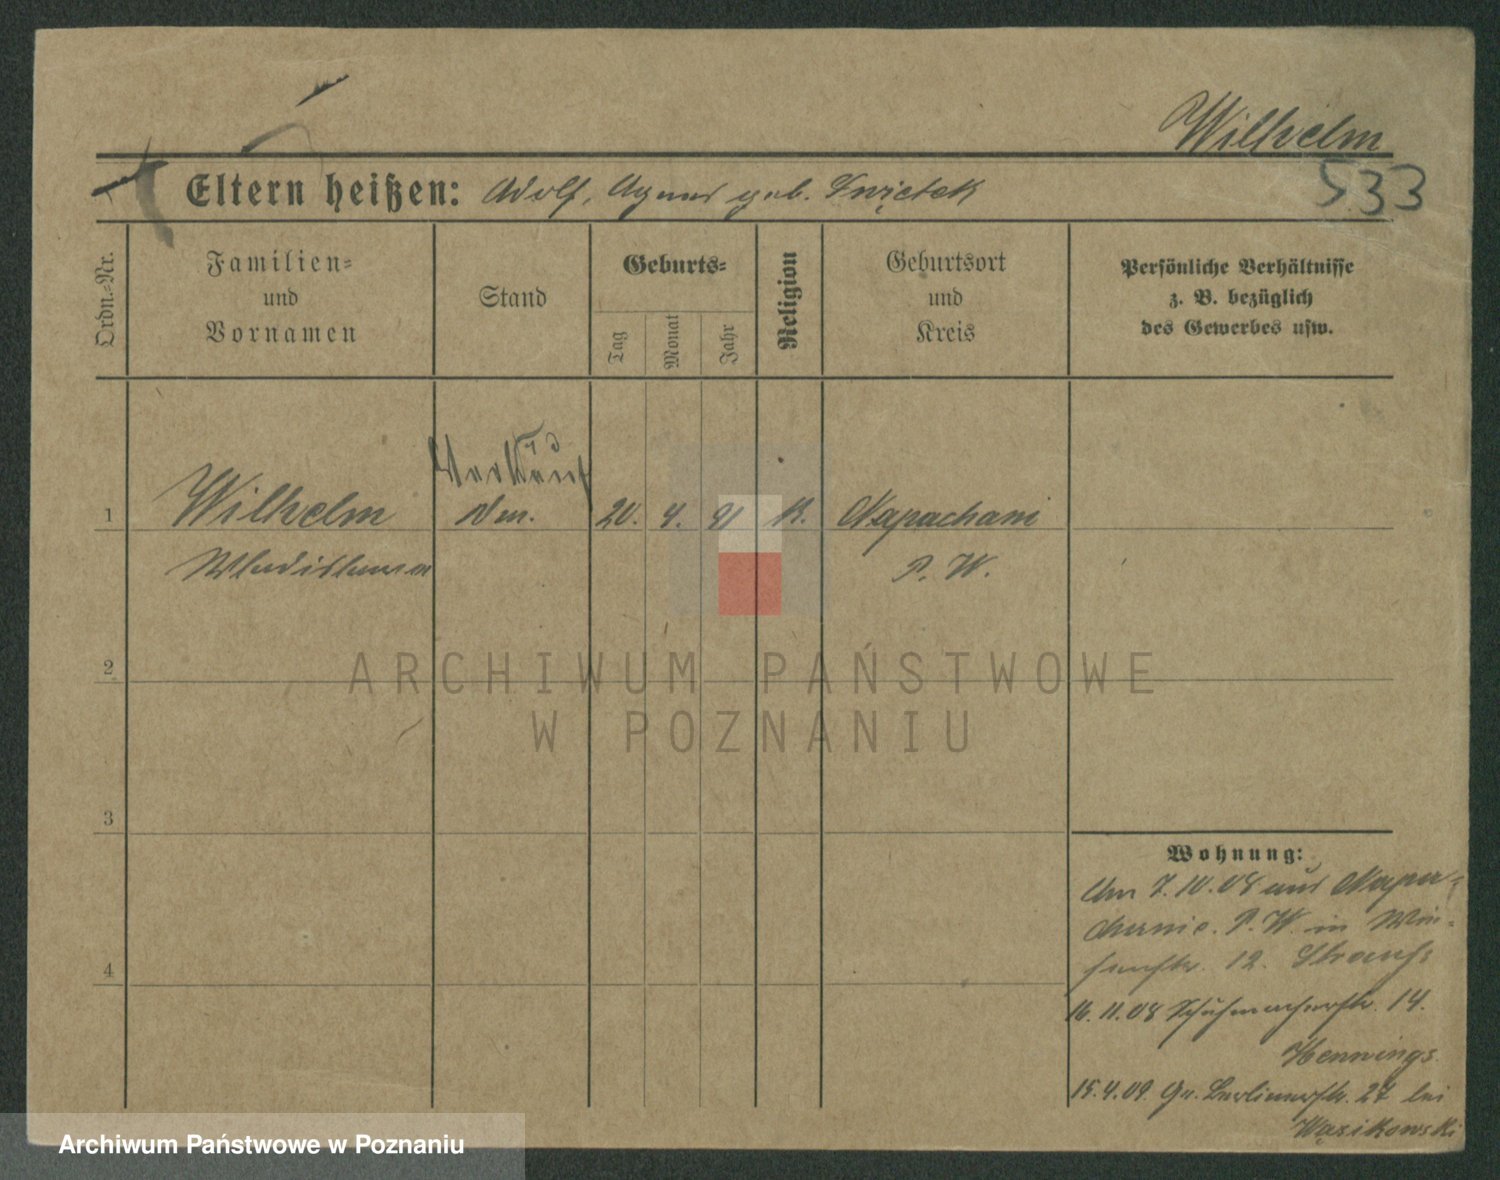 Wilhelm
533
Eltern heißen: Adolf, Agnes geb. Swiętek
Ordn.-Nr.
Familien-
und
Vornamen
Stand
Geburts-
Tag
Monat
Jahr
Religion
Geburtsort
und
Kreis
Persönliche Verhältnisse
z. B. bezüglich
des Gewerbes usw.
Verkäuf
1 Wilhelm rin. 20. 4. 91 K. Napachani
Wladislawa P. W.
2
ARCHIWUM PAŃSTWOWE
W POZNANIU
3
Wohnung:
Am 7.10.08 aus Napa-
chanie. P. W. in
12.
4
16.11.08 Schuhmacherstr. 14.
Hennings
15.4.09. Gr. Berlinerstr. 27 bei
Wąsikowski
Archiwum Państwowe w Poznaniu